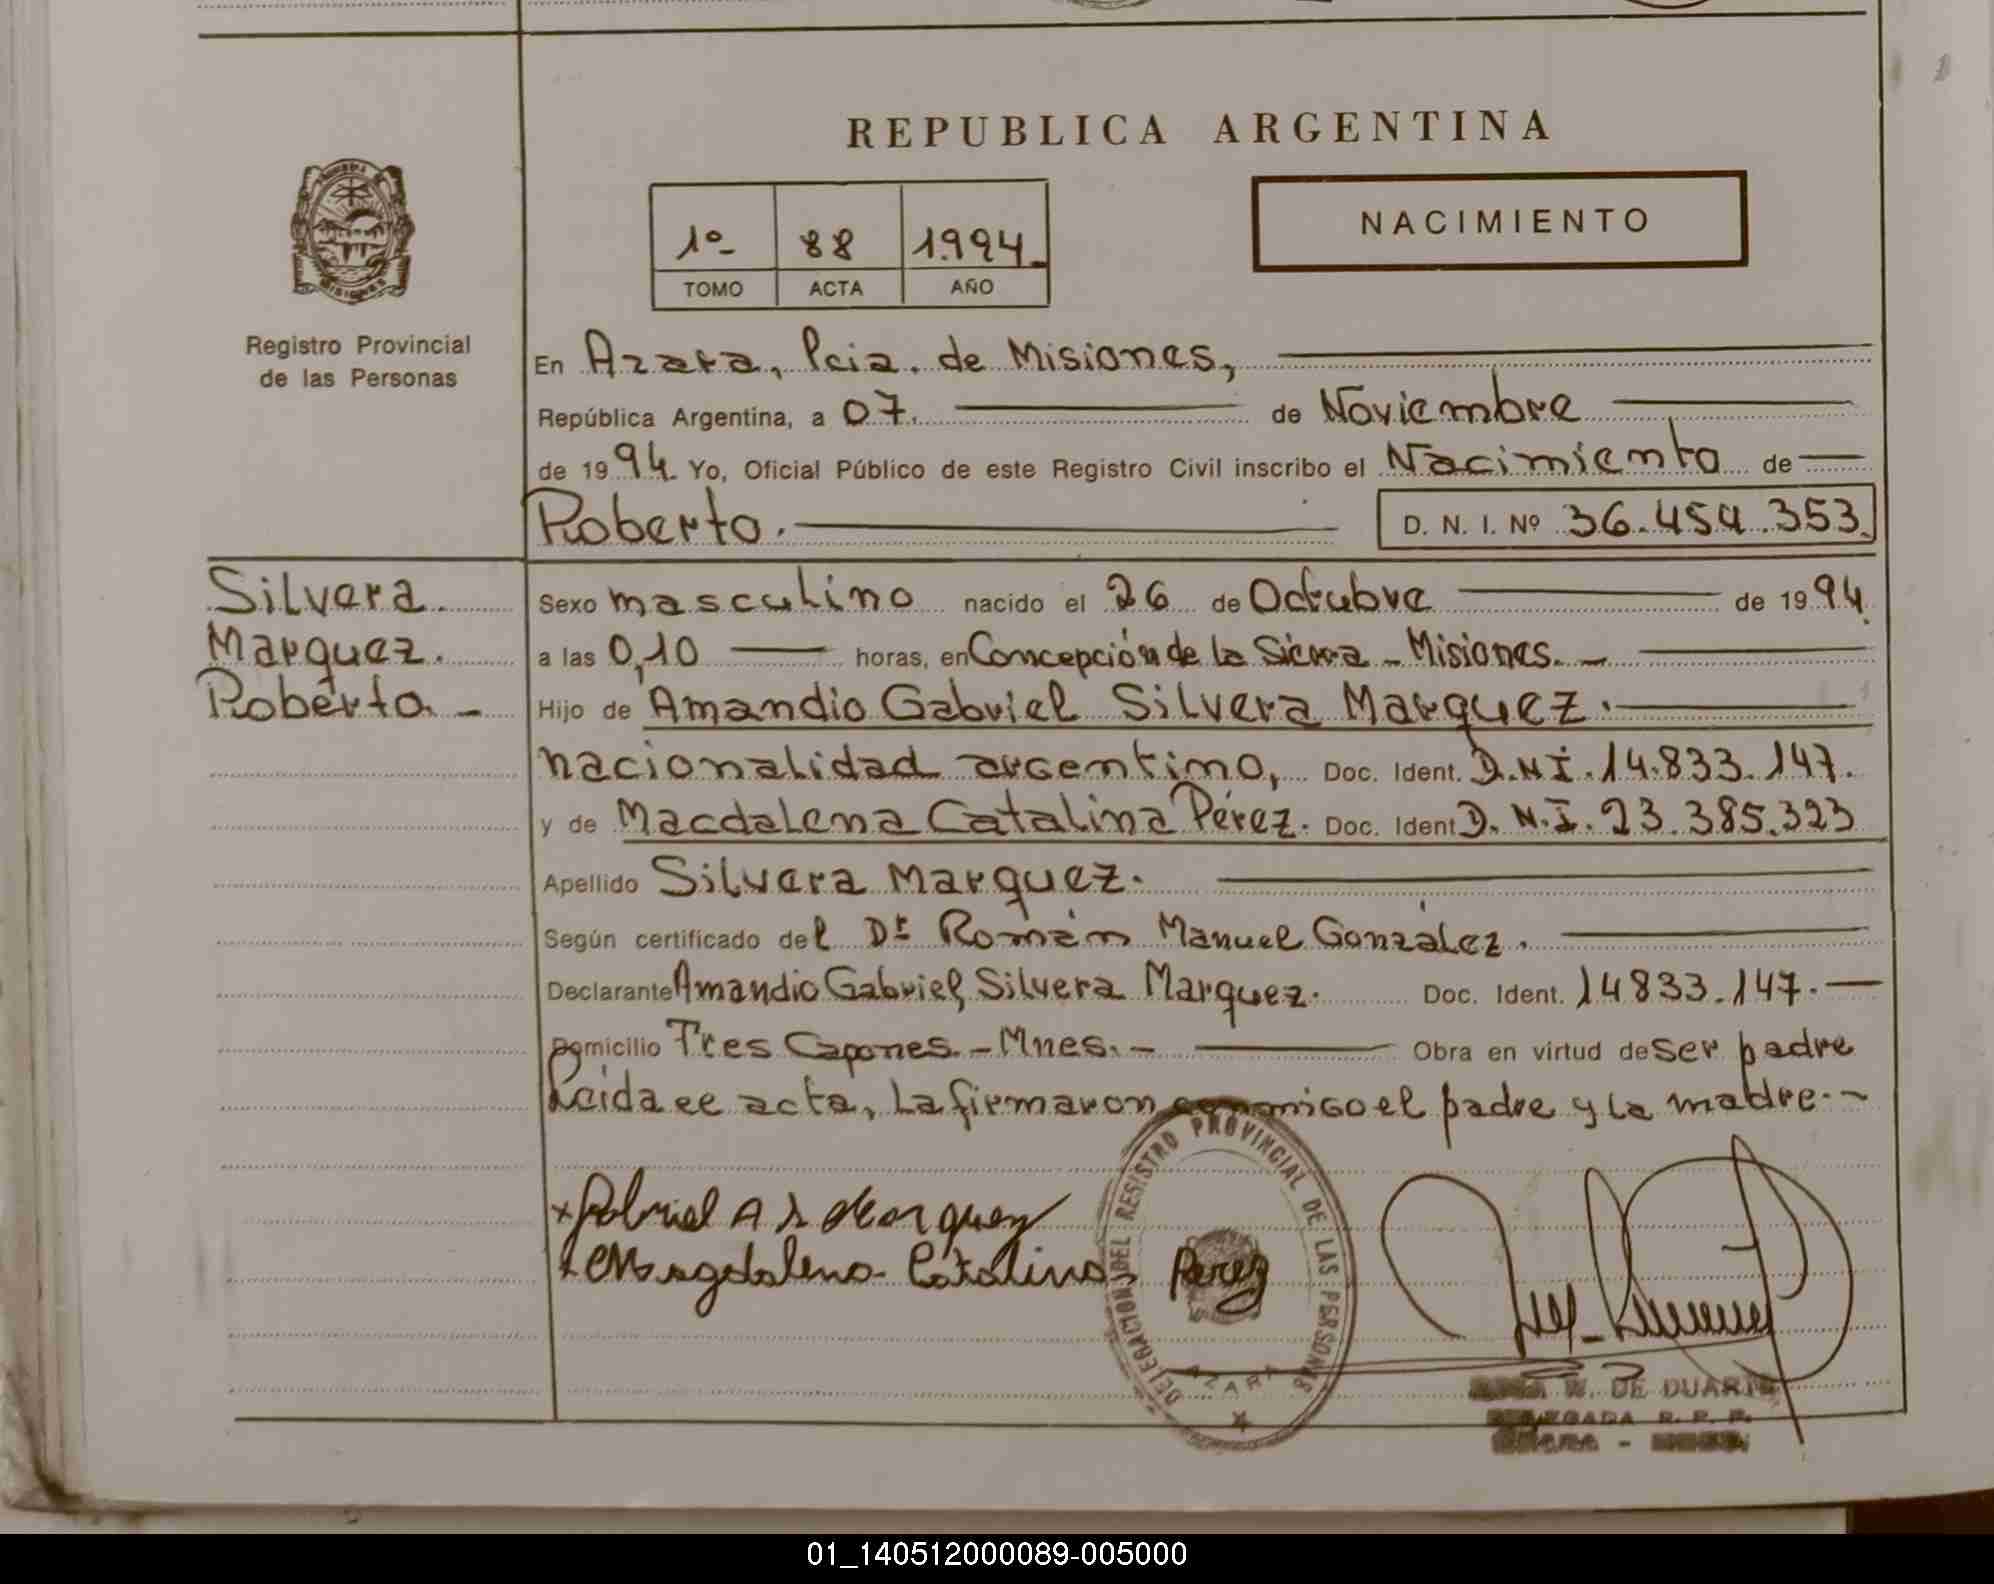 REPUBLICA ARGENTINA
1º- 88 1.994.
TOMO ACTA AÑO
NACIMIENTO
MISIONES
Registro Provincial
de las Personas
En Azara, Pcia. de Misiones,
República Argentina, a 07. de Noviembre
de 1994. Yo, Oficial Público de este Registro Civil inscribo el Nacimiento de
Roberto. D. N. I. Nº 36.454.353.
Silvera
Marquez.
Roberto. -
Sexo masculino nacido el 26 de Octubre de 1994.
a las 0,10 horas, en Concepción de la Sierra - Misiones. -
Hijo de Amandio Gabriel Silvera Marquez.
nacionalidad argentino, Doc. Ident. D.N.I. 14.833.147.
y de Magdalena Catalina Pérez. Doc. Ident D.N.I. 23.385.323
Apellido Silvera Marquez.
Según certificado del Dr Román Manuel González.
Declarante Amandio Gabriel Silvera Marquez. Doc. Ident. 14833.147. -
Domicilio Tres Capones. - Mnes. - Obra en virtud de ser padre
Leída el acta, la firmaron conmigo el padre y la madre. -
x Gabriel A S Marquez
x Magdalena Catalina Perez
DELEGACION DEL REGISTRO PROVINCIAL DE LAS PERSONAS
AZARA
W. DE DUARTE
DELEGADA R. P. P.
01_140512000089-005000